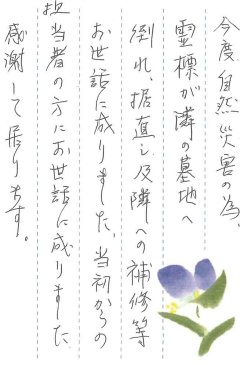 今度自然災害の為、
霊標が隣の墓地へ
倒れ、据直し及隣への補修等
お世話に成りました、当初からの
担当者の方にお世話に成りました
感謝して居ります。